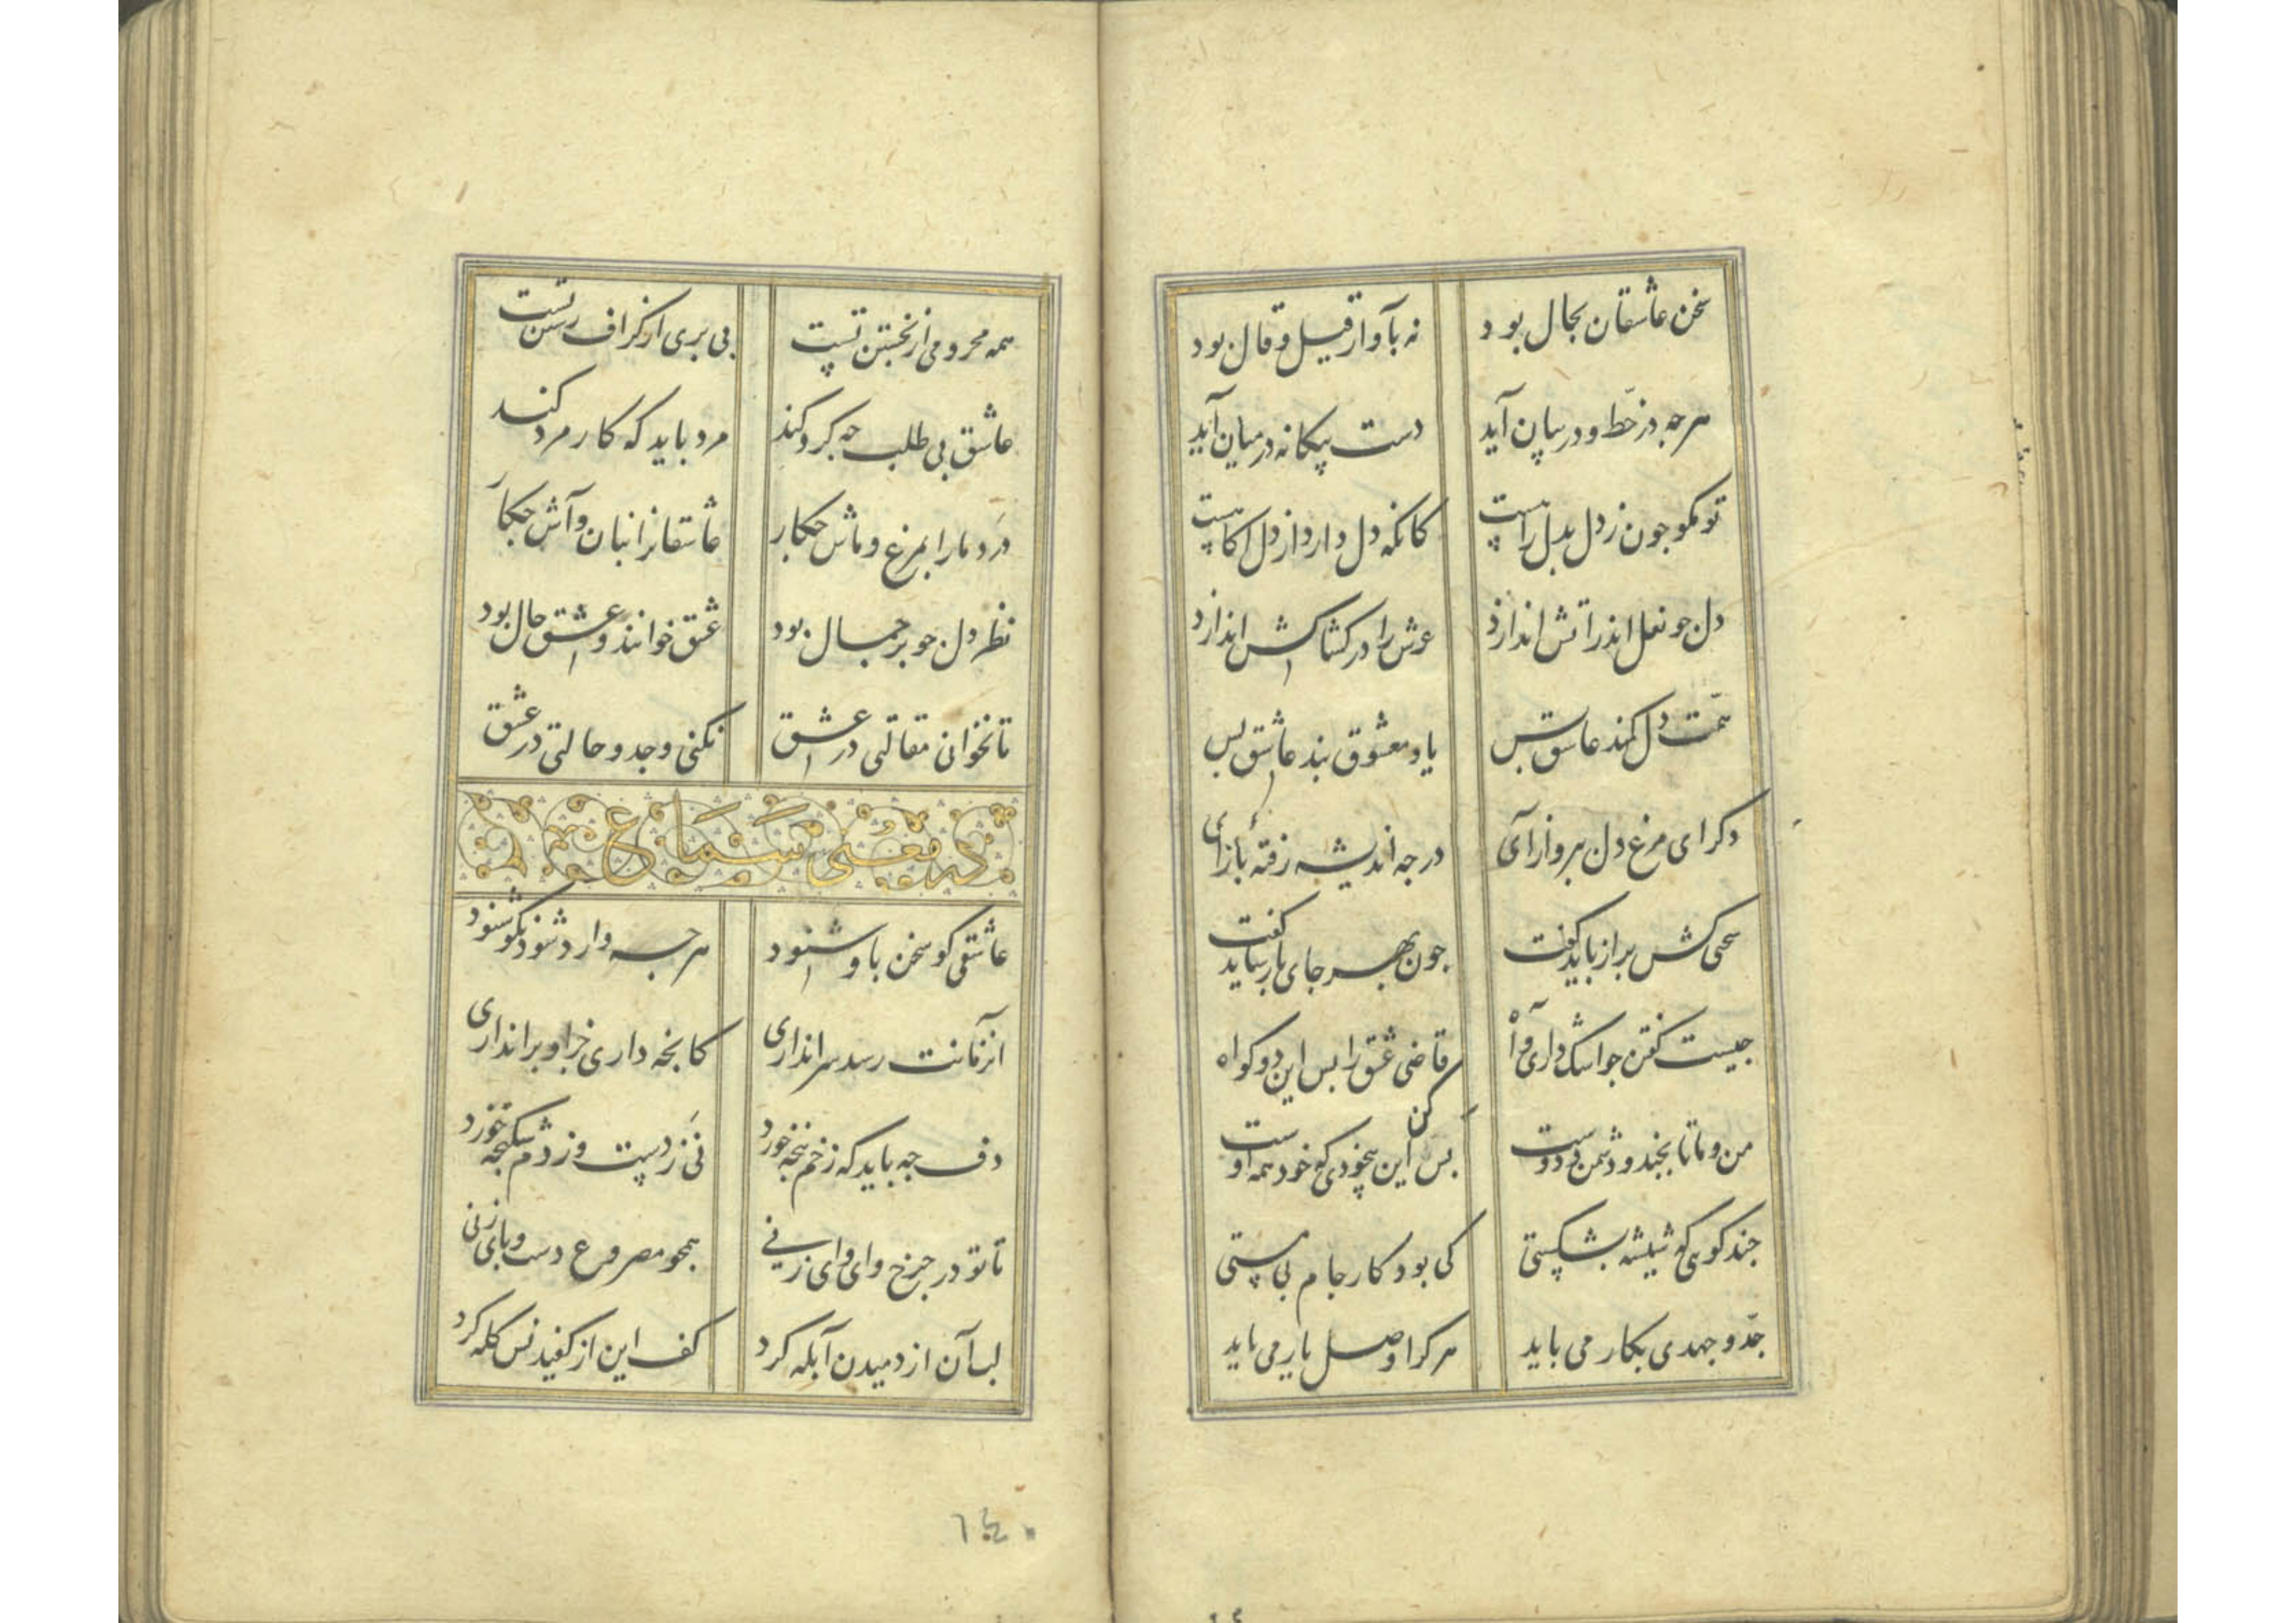 سخن عاشقان بحال بود نه بآواز قیل و قال بود
هرچه در خط و در بیان آید دست بیکانه در میان آید
تو مکو جون ز دل بدل راهست کانکه دل دارد از دل آکاهست
دل جو نعل اندر اتش اندازد عرش را در کشاکش اندازد
همت دل کمند عاشق بس یاد معشوق بند عاشق بس
دکر ای مرغ دل بپرواز آی در جه اندیشه رفتهٔ بازآی
سخنی کش براز باید کفت جون بهر جای باز نباید کفت
جیست کفتن جو اشک داری و آه قاضی عشق را بس این دو کواه
من و ما تا بجند و دشمن و دوست بس کن این بیخودی که خود همه اوست
جند کویی که شیشه بشکستی کی بود کار جام بی مستی
جدّ و جهدی بکار می باید هر کرا وصل یار می باید
همه محرومی از نجستن تست بی بری از کزاف رستن تست
عاشق بی طلب جه کرد کند مرد باید که کار مرد کند
درد ما را بمرغ و ماش جکار عاشقانرا بنان و آش جکار
نظر دل جو بر جمال بود عشق خوانند و عشق حال بود
تا نخوانی مقالتی در عشق نکنی وجد و حالتی در عشق
در معنی سماع
عاشقی کو سخن باو شنود هرجه وارد شود نکو شنود
انزمانت رسد سراندازی کانجه داری جز او براندازی
دف جه باید که زخم پنجه خورد نی ز دست و ز دم شکنجه خورد
تا تو در جرخ وای وای زنی همجو مصروع دست و پای زنی
لب آن از دمیدن آبله کرد کف این از کفیدنس کله کرد